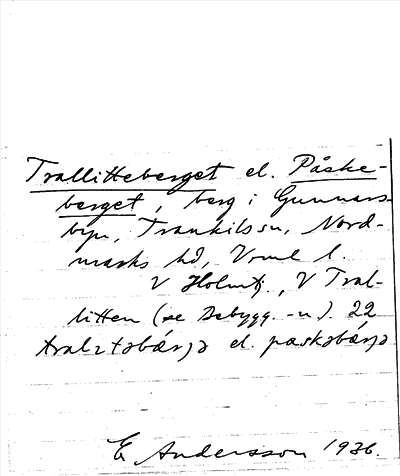 Trallitteberget el. Påske-
berget, berg i Gunnars-
byn, Trankils sn, Nord-
marks hd, Vrml l.
V Holmtj., V Tral-
litten (se Bebygg.-n.). 22
tralɩtəbárjə el. páskəbárjə
E Andersson 1936.